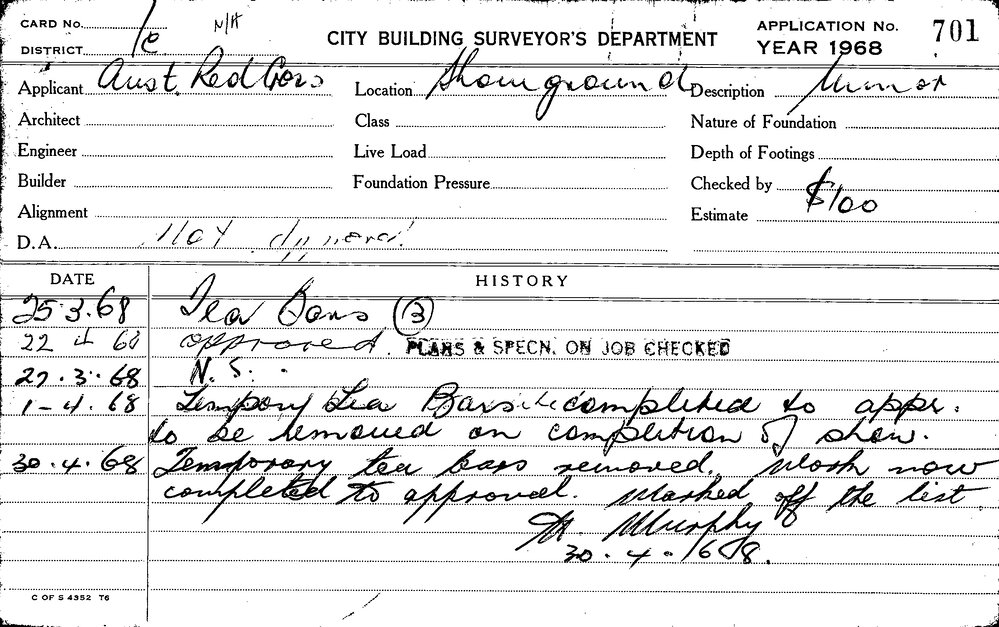 CARD No. N/A
DISTRICT 1e
CITY BUILDING SURVEYOR'S DEPARTMENT
APPLICATION No. 701
YEAR 1968
Applicant Aust. Red Cross
Location Showground
Description Minor
Architect
Class
Nature of Foundation
Engineer
Live Load
Depth of Footings
Builder
Foundation Pressure
Checked by
Alignment
Estimate $100
D.A.
DATE HISTORY
25.3.68 Tea Bars (3)
22 68 approved. PLANS & SPECN. ON JOB CHECKED
27.3.68 N.S.
1-4.68 Tempory Tea Bars completed to appr.
to be removed on completion of show.
30.4.68 Temporary tea bars removed. Work now
completed to approval. Marked off the list.
Murphy
30.4.1968.
C OF S 4352 T6